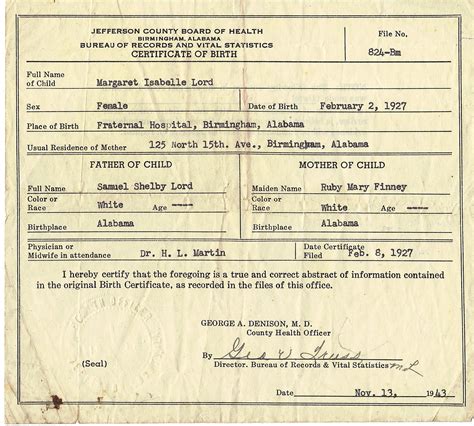 JEFFERSON COUNTY BOARD OF HEALTH
BIRMINGHAM, ALABAMA
BUREAU OF RECORDS AND VITAL STATISTICS
CERTIFICATE OF BIRTH
File No.
824-Bm
Full Name
of Child Margaret Isabelle Lord
Sex Female Date of Birth February 2, 1927
Place of Birth Fraternal Hospital, Birmingham, Alabama
Usual Residence of Mother 125 North 15th. Ave., Birmingham, Alabama
FATHER OF CHILD MOTHER OF CHILD
Full Name Samuel Shelby Lord Maiden Name Ruby Mary Finney
Color or Race White Age ---- Color or Race White Age ----
Birthplace Alabama Birthplace Alabama
Physician or
Midwife in attendance Dr. H. L. Martin Date Certificate
Filed Feb. 8, 1927
I hereby certify that the foregoing is a true and correct abstract of information contained
in the original Birth Certificate, as recorded in the files of this office.
GEORGE A. DENISON, M. D.
County Health Officer
By Geo
(Seal) Director. Bureau of Records & Vital Statistics
Date Nov. 13, 1943